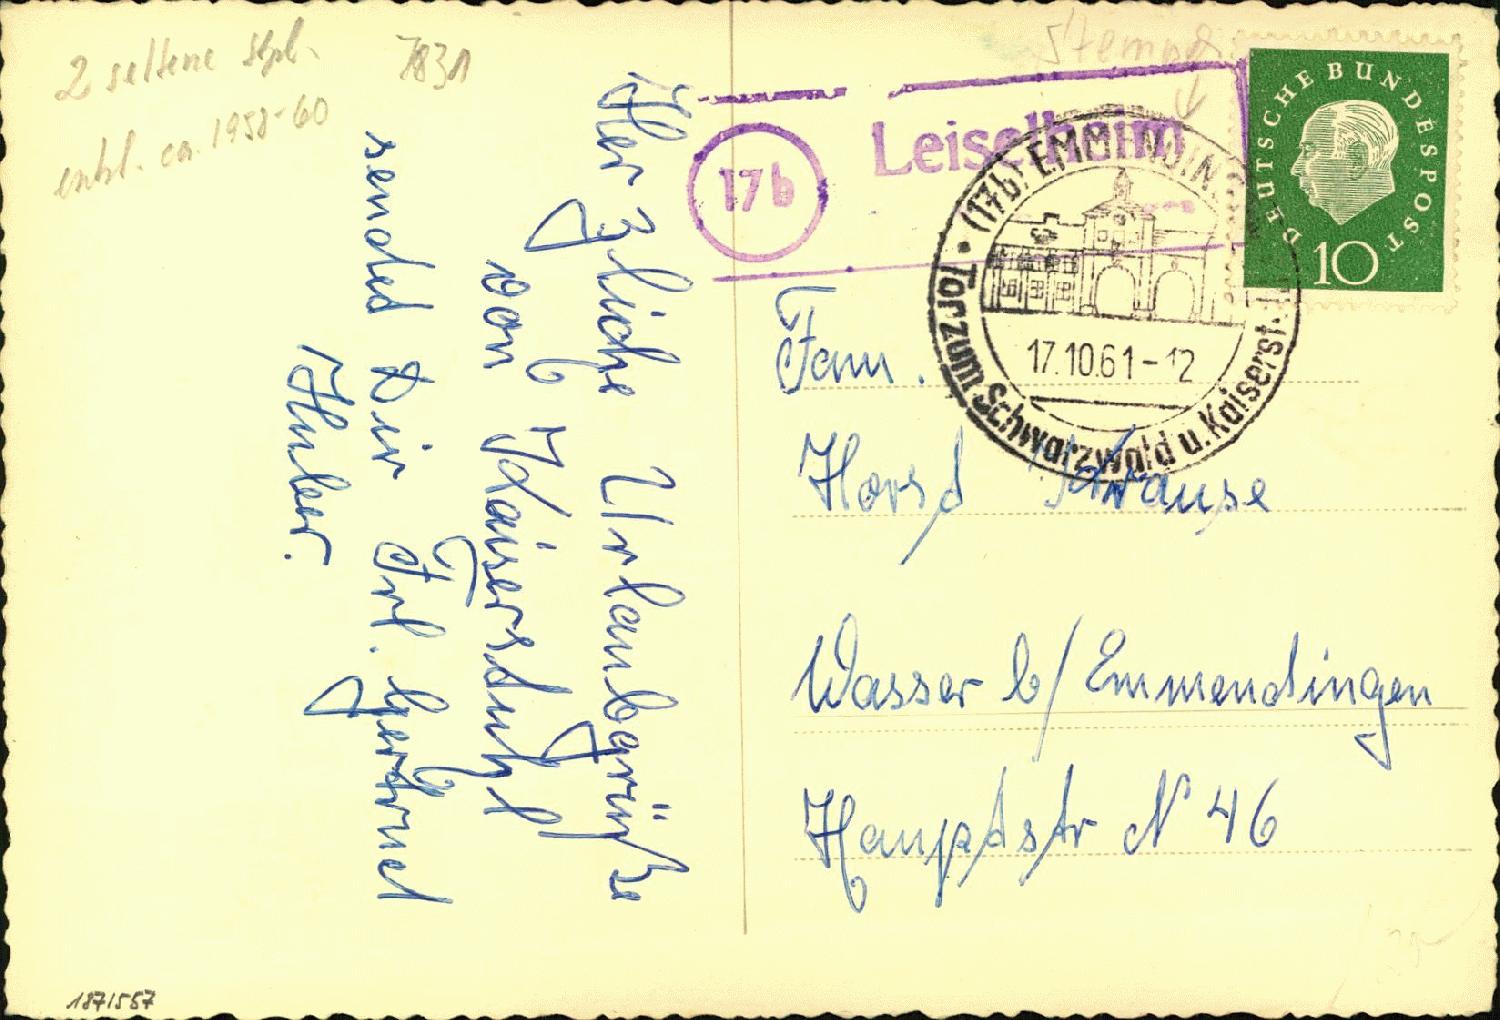 2 seltene Stpl.
enkl. ca. 1958-60
7831
Stempel
17b
Leiselheim
(17b) EMMENDINGEN
17.10.61-12
Tor zum Schwarzwald u. Kaiserst.
DEUTSCHE BUNDESPOST
10
Herzliche Urlaubsgrüße
von Kaiserstuhl
sendet Dir Frl. Gertrud
Huber.
Fam.
Horst Krause
Wasser b/ Emmendingen
Hauptstr N 46
1871557